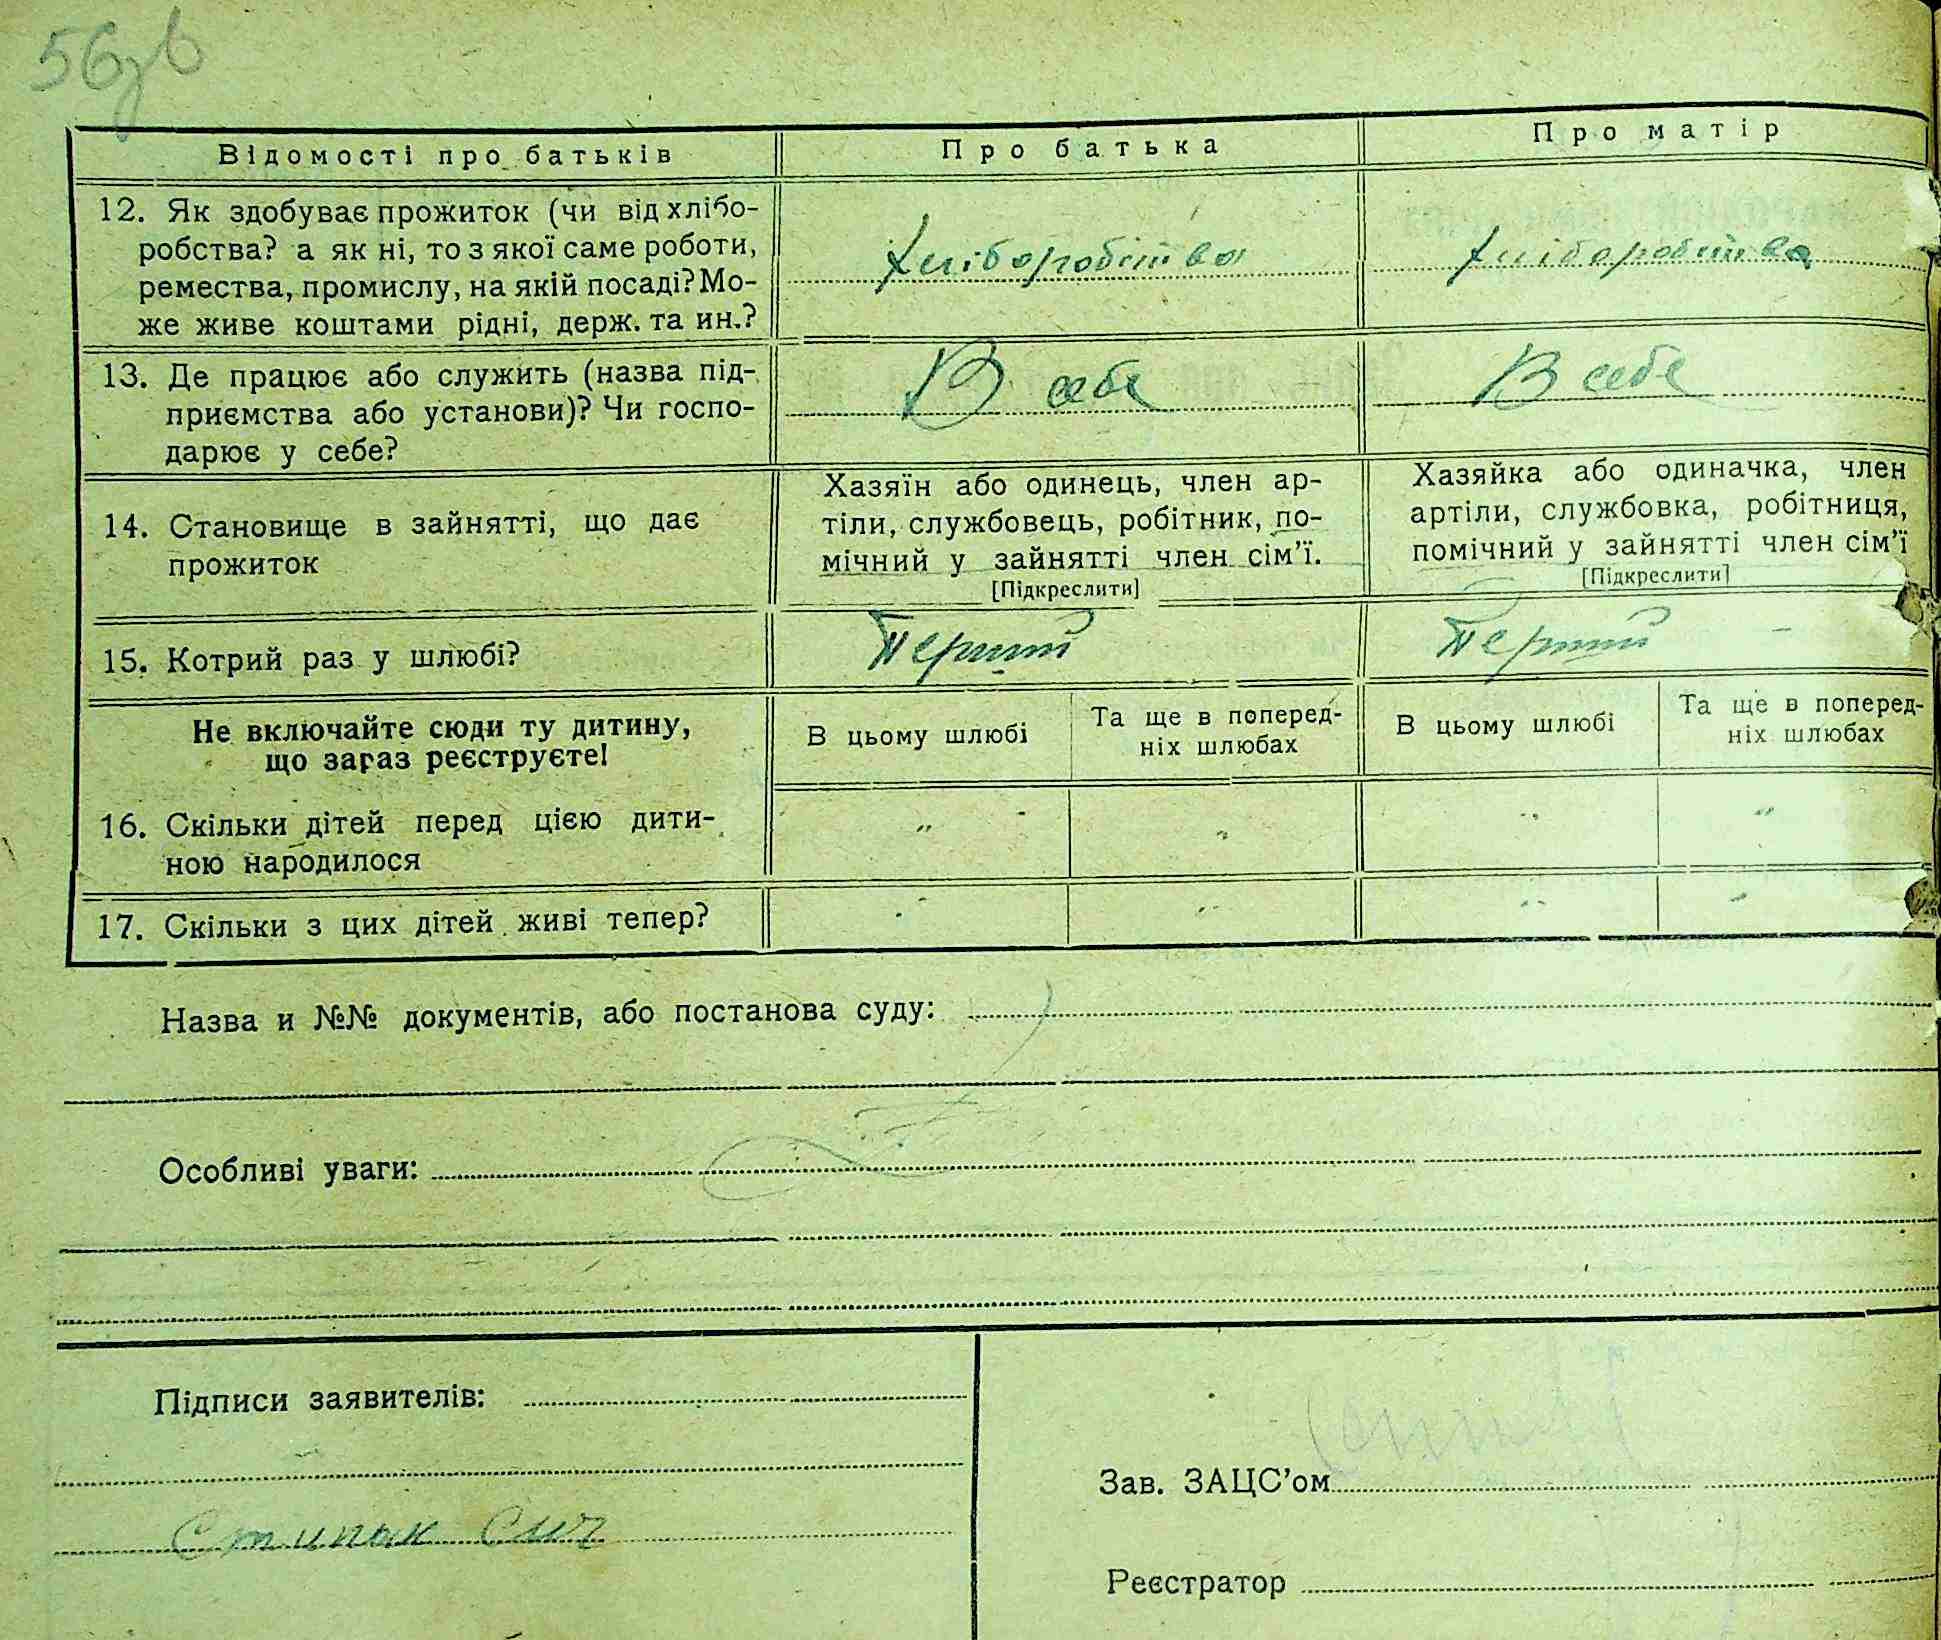 56зв
Відомості про батьків
Про батька
Про матір
12. Як здобуває прожиток (чи від хлібо-
робства? а як ні, то з якої саме роботи,
ремества, промислу, на якій посаді? Мо-
же живе коштами рідні, держ. та ин.?
хліборобітва
хліборобітва
13. Де працює або служить (назва під-
приємства або установи)? Чи госпо-
дарює у себе?
В себе
В себе
14. Становище в зайнятті, що дає
прожиток
Хазяїн або одинець, член ар-
тіли, службовець, робітник, по-
мічний у зайнятті член сім'ї.
[Підкреслити]
Хазяйка або одиначка, член
артіли, службовка, робітниця,
помічний у зайнятті член сім'ї
[Підкреслити]
15. Котрий раз у шлюбі?
Перший
Перший
Не включайте сюди ту дитину,
що зараз реєструєте!
В цьому шлюбі
Та ще в поперед-
ніх шлюбах
В цьому шлюбі
Та ще в поперед-
ніх шлюбах
16. Скільки дітей перед цією дити-
ною народилося
17. Скільки з цих дітей живі тепер?
Назва и №№ документів, або постанова суду:
Особливі уваги:
Підписи заявителів:
Зав. ЗАЦС'ом
Реєстратор